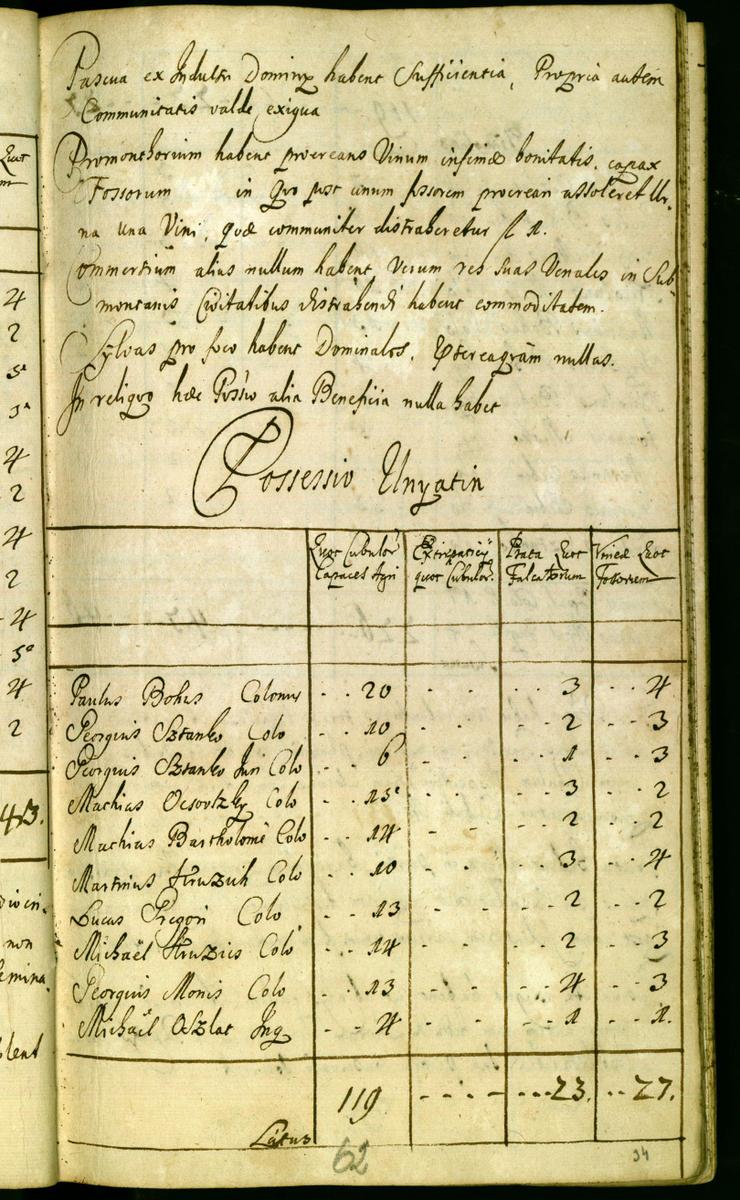 Pascua ex Indultu Dominij habent Sufficientia, Propria autem
Communitatis valde exigua
Promonthorium habent procreans Vinum infimæ bonitatis, capax
Fossorum in quo post unum fossorem procreari assoleret Ur,
na una Vini, quæ communiter distraheretur fl 1.
Commertium alias nullum habent, Verum res suas Venales in Sub
montanis Civitatibus distrahendi habent commoditatem.
Sylvas pro foco habent Dominales, Ædtereaquam nullas.
In reliquo hæc Possio alia Beneficia nulla habet
Possessio Unyatin
Quot Cubulor Capaces Agri
Extirpaticij quot Cubulor.
Prata Quot Falcatorum
Vineæ Quot Fossorum
Paulus Bohus Colonus - - 20 - - - - 3 - - 4
Georgius Sztanko Colo - - 10 - - - - 2 - - 3
Georgius Sztanko Juni Colo - - 6 - - - - 1 - - 3
Mathias Ocsovtzky Colo - - 15 - - - - 3 - - 2
Mathias Bartholome Colo - - 14 - - - - 2 - - 2
Martinus Hruzich Colo - - 10 - - - - 3 - - 4
Lucas Gregori Colo - - 13 - - - - 2 - - 2
Michaël Hruzics Colo - - 14 - - - - 2 - - 3
Georgius Monis Colo - - 13 - - - - 4 - - 3
Michaël Oszlat Inq - - 4 - - - - 1 - - 1.
Latus 119 - - - - - - - 23. - - 27.
62
34
4
2
5
5
4
2
4
2
4
5
4
2
43.
non